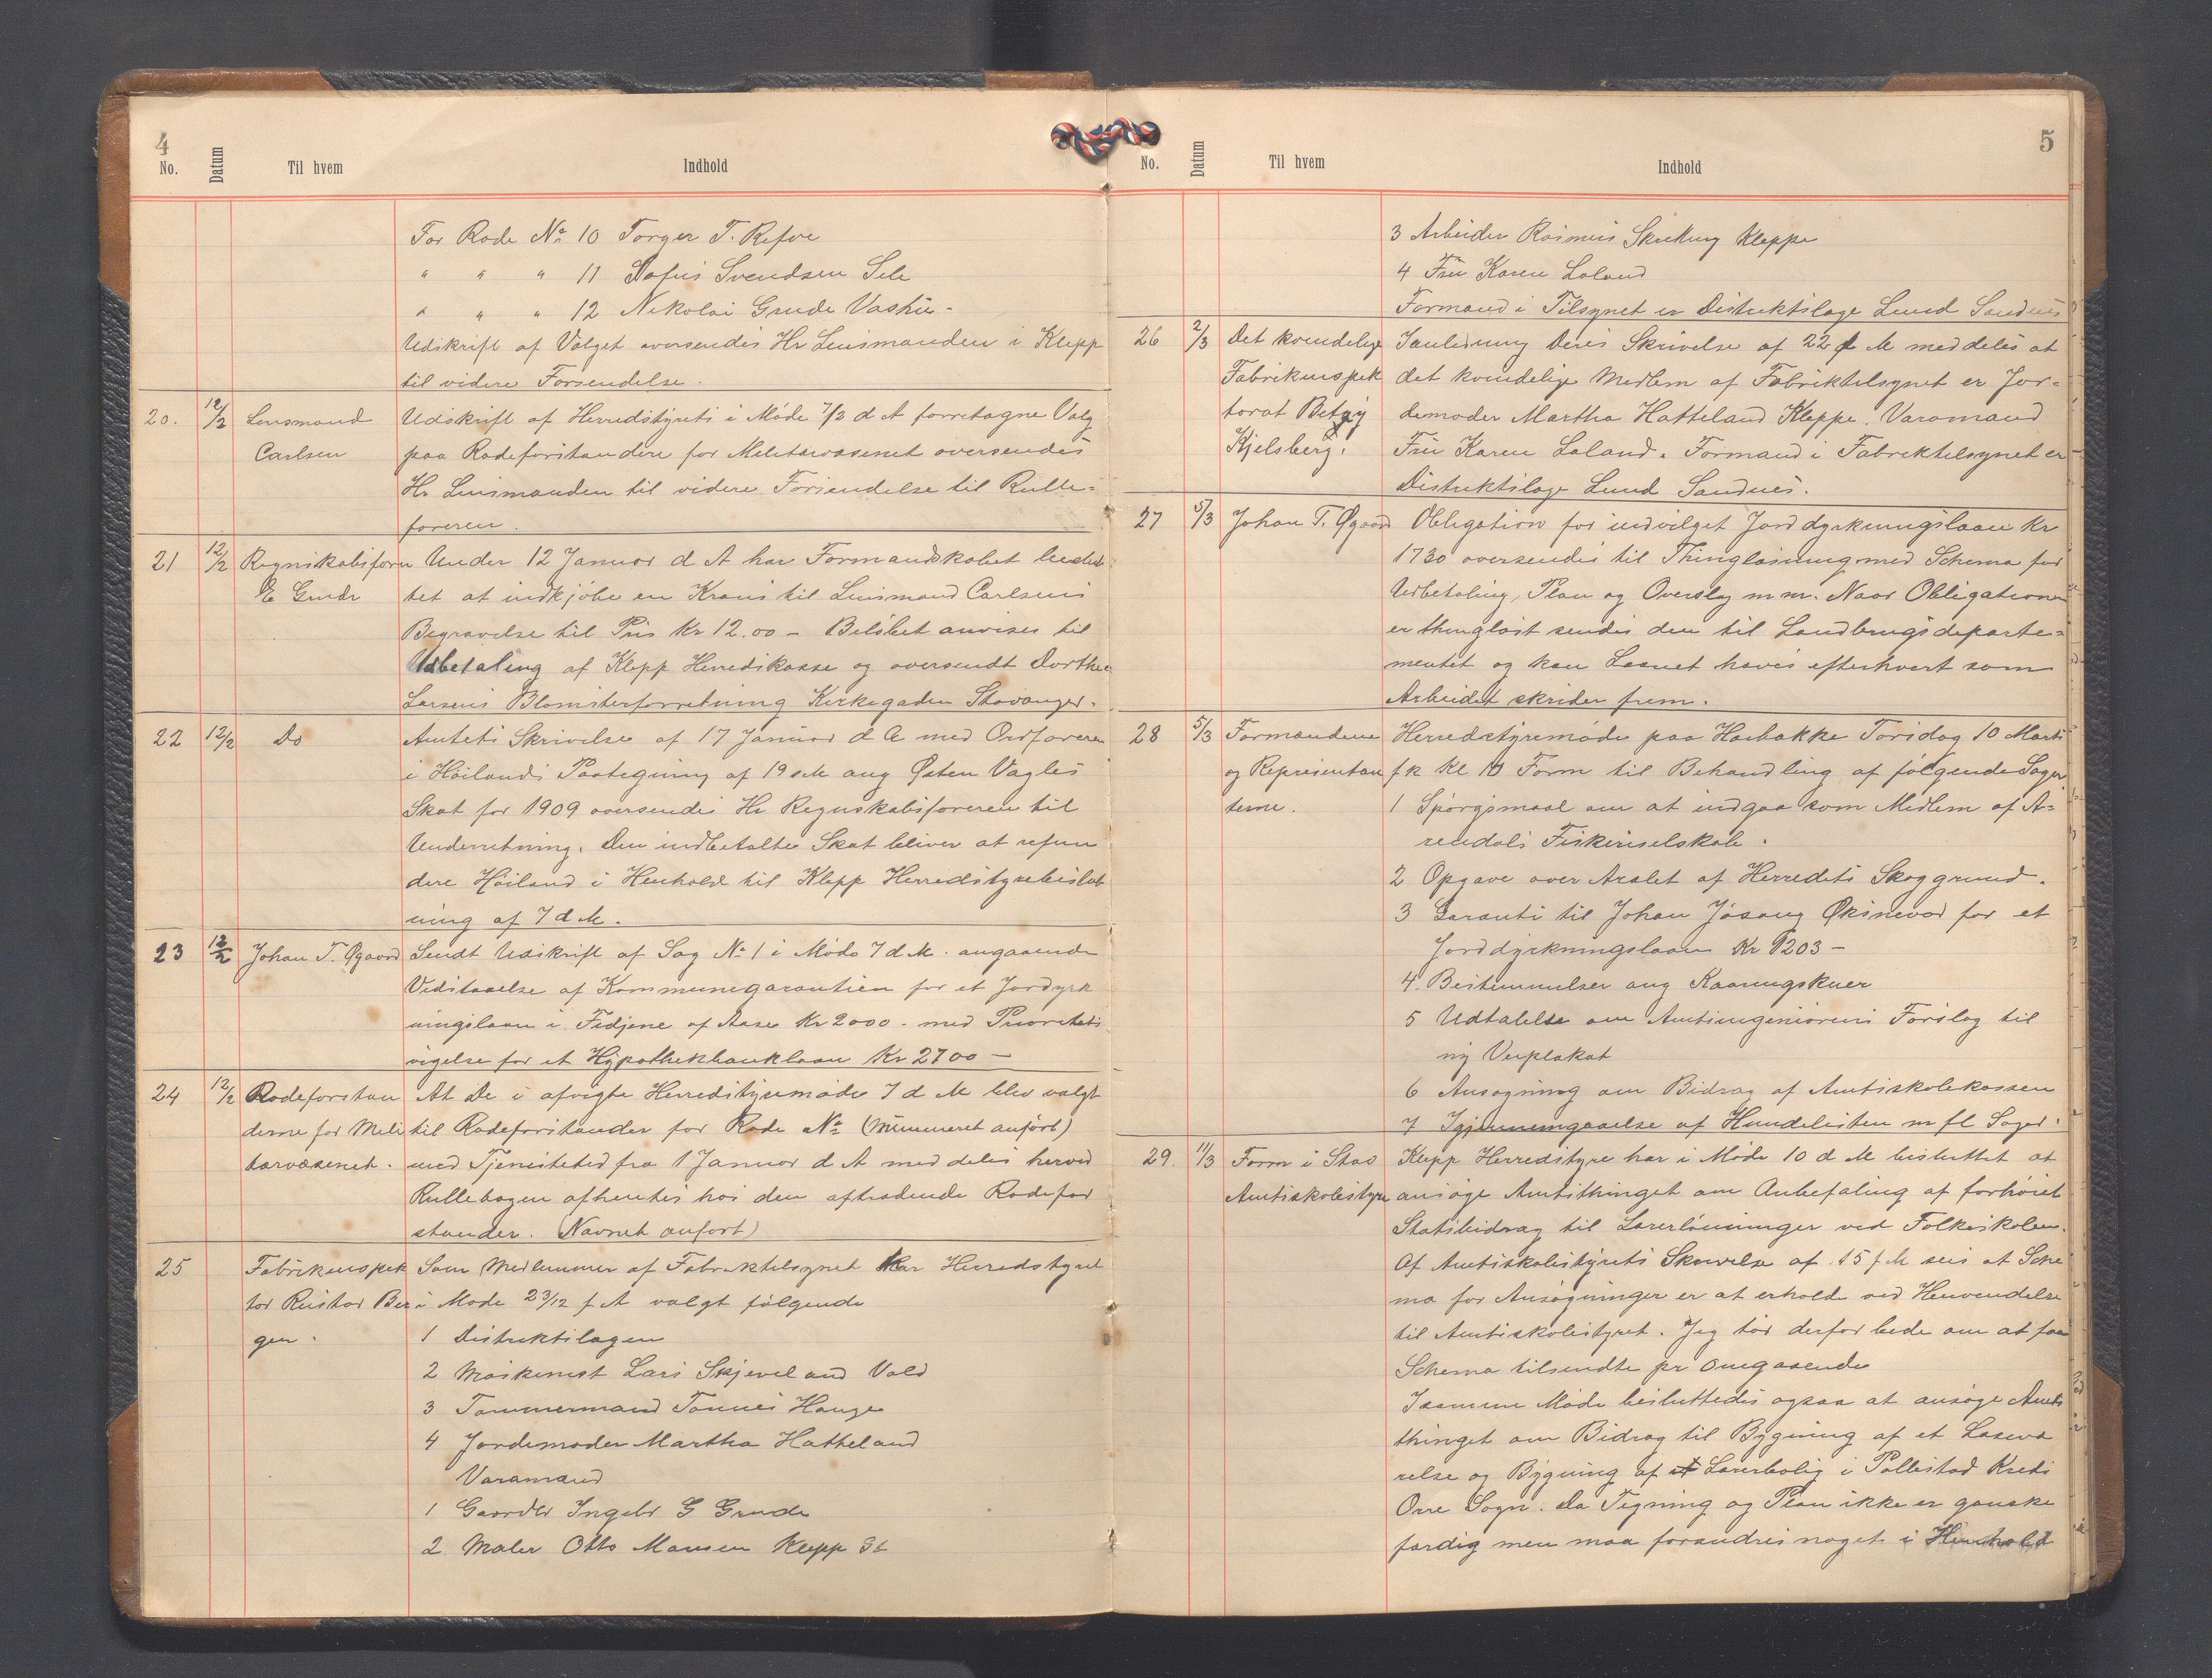 4
No. Datum Til hvem Indhold
For Rode No 10 Torger T. Refve
" " " 11 Dofus Svendsen Sele
" " " 12 Nikolai Grude Vashus-
Udskrift af Valget oversendes Hr Lensmanden i Klepp
til videre Forsendelse.
20. 12/2 Lensmand Udskrift af Herredstyrets i Møde 7/2 d A foretagne Valg
Carlsen paa Rodeforstandere for Militærvæsenet oversendes
Hr Lensmanden til videre Forsendelse til Rulle-
føreren.
21 12/2 Regnskabsfører Under 12 Januar d A har Formandskabet beslut-
E Grude tet at indkjøbe en Krans til Lensmand Carlsens
Begravelse til Pris Kr 12.00 – Beløbet anvises til
Udbetaling af Klepp Herredskasse og oversendt Dorthea
Larsens Blomsterforretning Kirkegaden Stavanger.
22 12/2 Do Amtets Skrivelse af 17 Januar d A med Ordføreren
i Høilands Paategning af 19 s M ang Østen Vagles
Skat for 1909 oversendes Hr Regnskabsføreren til
Underretning. Den indbetalte Skat bliver at refun
dere Høiland i Henhold til Klepp Herredstyrebeslut
ning af 7 d M.
23 12/2 Johan T. Øgaard Sendt Udskrift af Sag No 1 i Møde 7 d M. angaaende
Vedstaaelse af Kommunegarantien for et Jordyrk
ningslaan i Fedjene af Aase Kr 2000 - med Prioritets
vigelse for et Hypothekbanklaan Kr 2700 –
24 12/2 Rodeforstan At De i afvigte Herredstyremøde 7 d M blev valgt
derne for Mili til Rodeforstander for Rode No (Nummeret anført)
tærvæsenet. med Tjenestetid fra 1 Januar d A meddeles herved
Rullebogen afhentes hos den aftrædende Rodefor
stander. (Navnet anført)
25 Fabrikinspek Som Medlemmer af Fabriktilsynet har Herredstyret
tør Rustad Ber i Møde 23/12 f A valgt følgende
gen. 1 Distriktslægen
2 Maskinist Lars Skjeveland Vold
3 Tømmermand Tønnes Hauge
4 Jordemoder Martha Hatteland
Varamænd
1 Gaardbr Ingebr G Grude
2 Maler Otto Mansen Klepp St
5
No. Datum Til hvem Indhold
3 Arbeider Rasmus Kleppe
4 Fru Karen Laland
Formand i Tilsynet er Distriktslæge Lund Sandnes
26 2/3 Det kvindelige Ianledning Deres Skrivelse af 22 f M meddeles at
Fabrikinspek det kvindelige Medlem af Fabriktilsynet er Jor-
torat Betzy demoder Martha Hatteland Kleppe. Varamand
Kjelsberg. Fru Karen Laland. Formand i Fabriktilsynet er
Distriktslæge Lund Sandnes.
27 5/3 Johan T. Øgaard Obligation for indvilget Jorddyrkningslaan Kr
1730 oversendes til Thinglæsning med Schema for
Udbetaling, Plan og Overslag m m. Naar Obligationen
er thinglæst sendes den til Landbrugsdeparte-
mentet og kan Laanet hæves efterhvert som
Arbeidet skrider frem.
28 5/3 Formændene Herredstyremøde paa Haabakke Torsdag 10 Marts
og Representan fk Kl 10 Form til Behandling af følgende Sager
terne. 1 Spørgsmaal om at indgaa som Medlem af A-
rendals Fiskeriselskab.
2 Opgave over Aralet af Herredets Skoggrund.
3 Garanti til Johan Jåsang Øksnevad for et
Jorddyrkningslaan Kr 1203 –
4. Bestemmelser ang Kaaringskuer
5 Udtalelse om Amtsingeniørens Forslag til
ny Veiplakat
6 Ansøgning om Bidrag af Amtsskolekassen
7 Igjennemgaaelse af Hundelisten m fl Sager.
29. 11/3 Form i Stav Klepp Herredstyre har i Møde 10 d M besluttet at
Amtsskolestyre ansøge Amtsthinget om Anbefaling af forhøiet
Statsbidrag til Lærerlønninger ved Folkeskolen.
Af Amtsskolestyrets Skrivelse af 15 f M sees at Sche
ma for Ansøgninger er at erholde ved Henvendelse
til Amtsskolestyret. Jeg tør derfor bede om at faa
Schema tilsendte pr omgaaende
Isamme Møde besluttedes ogsaa at ansøge Amts
thinget om Bidrag til Bygning af et Læseva
relse og Bygning af et Lærerbolig i Pollestad Kreds
Orre Sogn. Da Tegning og Plan ikke er ganske
færdig men maa forandres noget i Henhold